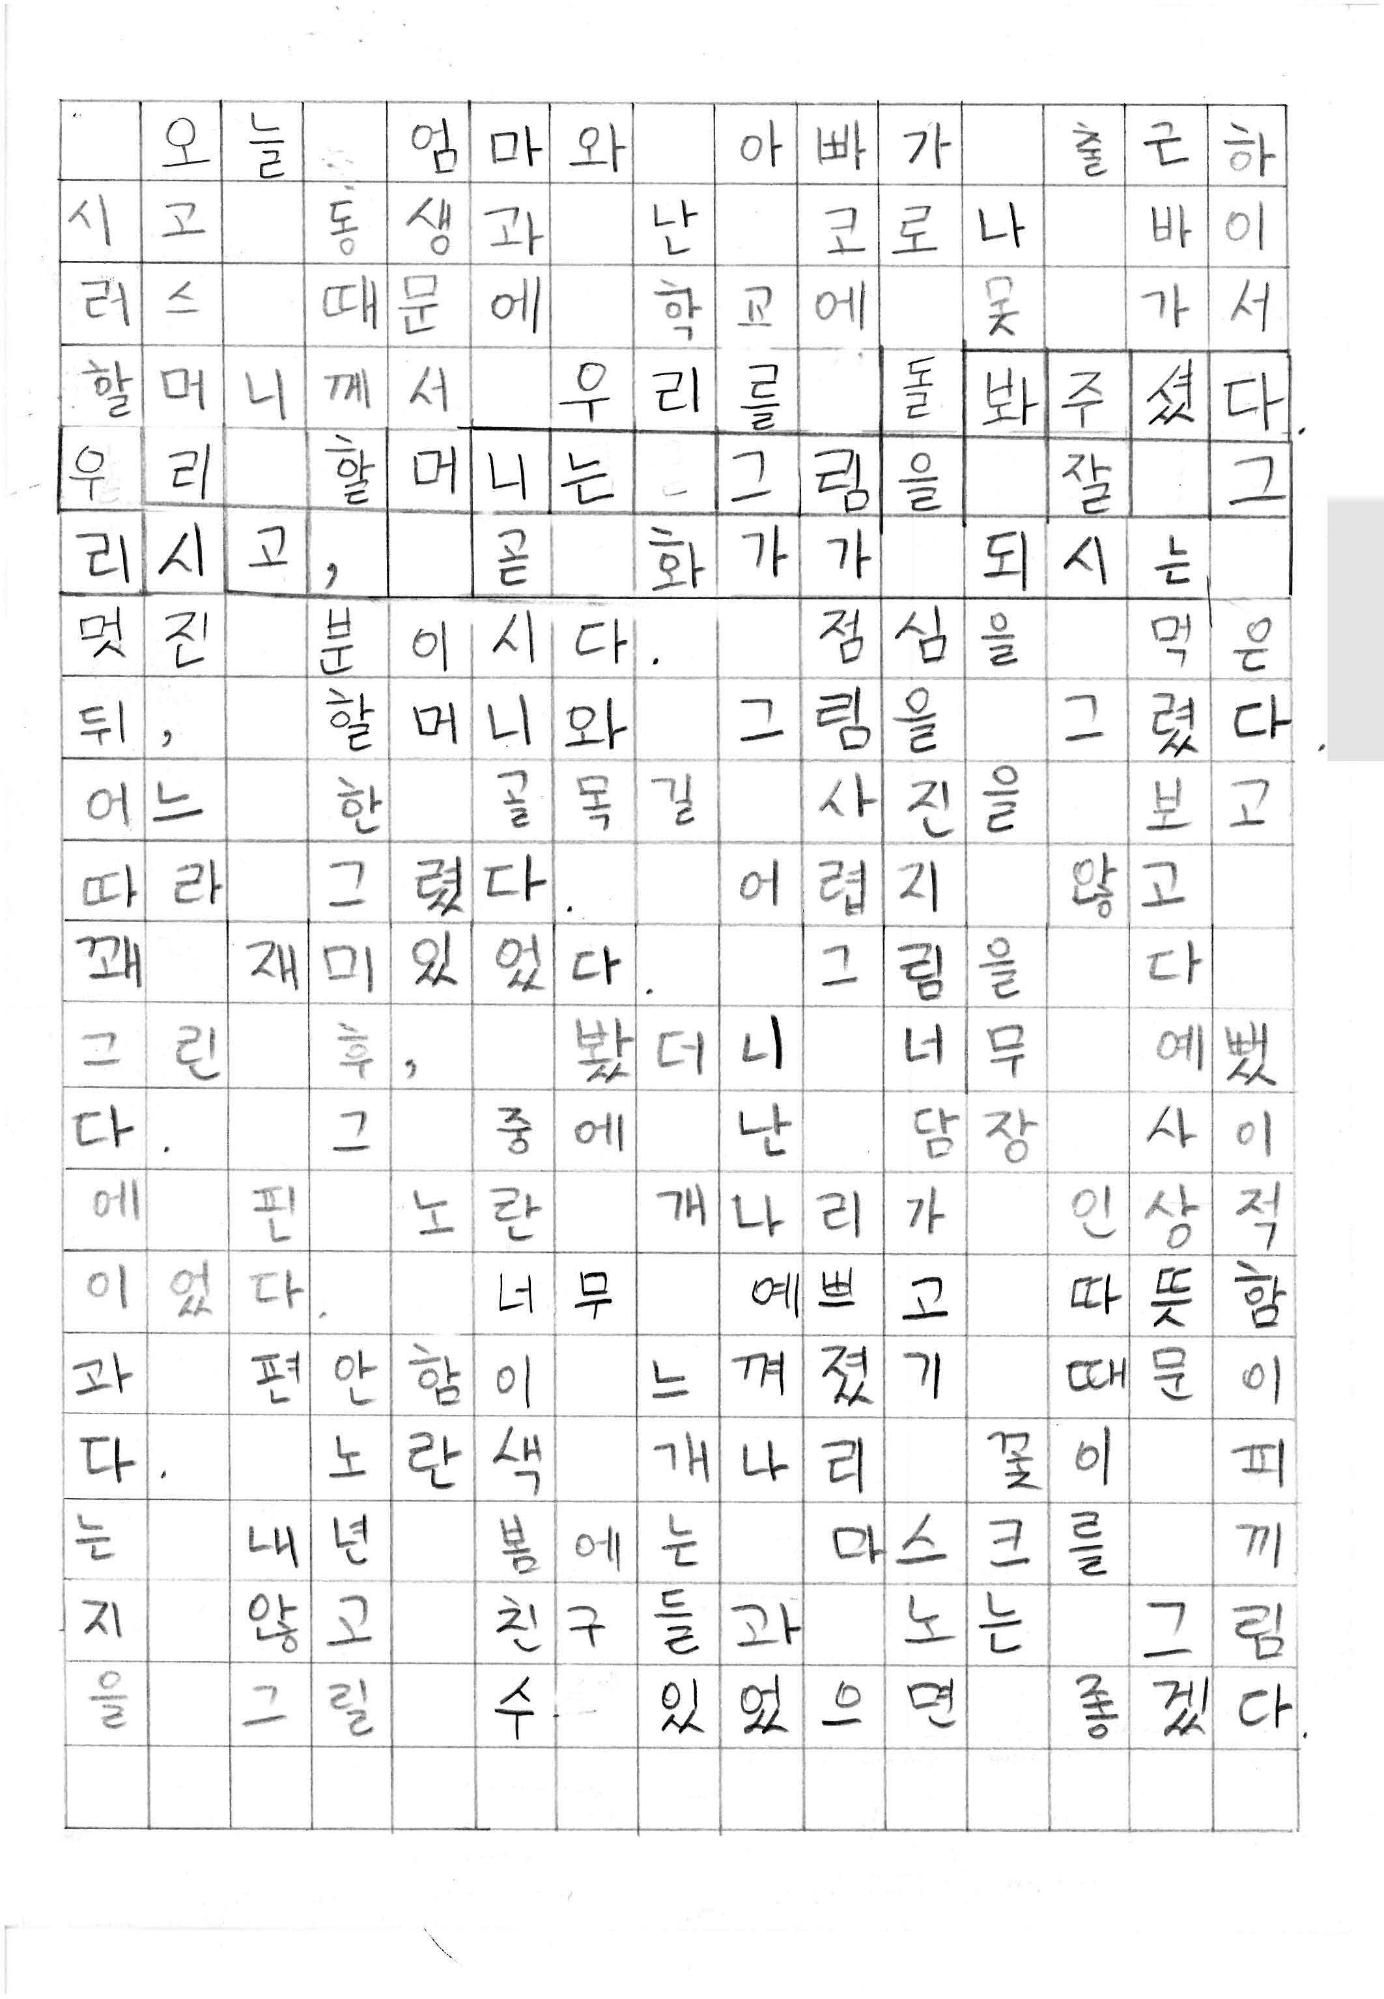 오늘 엄마와 아빠가 출근하
시고 동생과 난 코로나 바이
러스 때문에 학교에 못 가서
할머니께서 우리를 돌봐주셨다.
우리 할머니는 그림을 잘 그
리시고, 곧 화가가 되시는
멋진 분이시다. 점심을 먹은
뒤, 할머니와 그림을 그렸다.
어느 한 골목길 사진을 보고
따라 그렸다. 어렵지 않고
꽤 재미있었다. 그림을 다
그린 후, 봤더니 너무 예뻤
다. 그 중에 난 담장 사이
에 핀 노란 개나리가 인상적
이었다. 너무 예쁘고 따뜻함
과 편안함이 느껴졌기 때문이
다. 노란색 개나리 꽃이 피
는 내년 봄에는 마스크를 끼
지 않고 친구들과 노는 그림
을 그릴 수 있었으면 좋겠다.